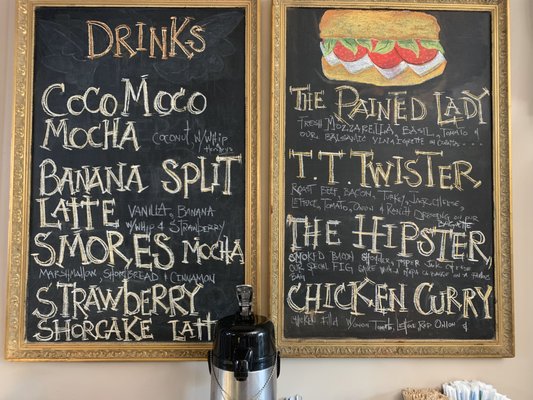 DRINKS
COCO MOCO
MOCHA COCONUT, W/WHIP
BANANA SPLIT
LATTE VANILLA, BANANA
W/WHIP & STRAWBERRY
S'MORES MOCHA
MARSHMALLOW, SHORTBREAD & CINNAMON
STRAWBERRY
SHORGCAKE LATT
THE PAINTED LADY
FRESH MOZZARELLA, BASIL, TOMATO &
OUR BALSAMIC VINAIGRETTE ON CIABATTA...
T.T. TWISTER
ROAST BEEF, BACON, TURKEY, JACK CHEESE,
LETTUCE, TOMATO, ONION & RANCH DRESSING ON OUR
THE HIPSTER
SMOKED BACON
OUR SPECIAL FIG
CHICKEN CURRY
CHICKEN TOMATO, LETTUCE RED ONION &